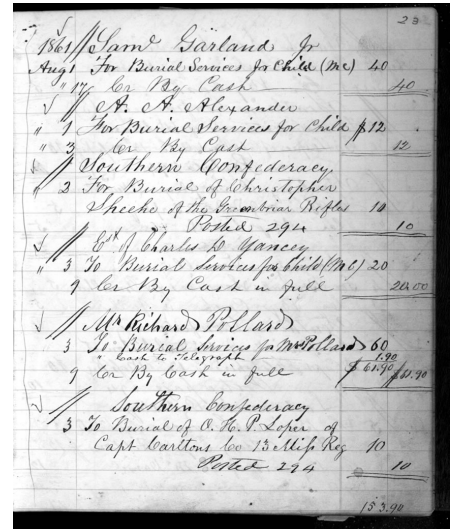 23
1861 // Saml Garland Jr
Aug 1 For Burial Services for Child (Mc) 40
" 17 Cr By Cash 40
// A. A. Alexander
" 1 For Burial Services for Child $12
" 3 Cr By Cash 12
// Southern Confederacy
" 2 For Burial of Christopher
Sheehe of the Greenbriar Rifles 10
Posted 294 10
// Est of Charles L Yancey
" 3 To Burial Services for Child (Mc) 20
9 Cr By Cash in full 20.00
// Mr Richard Pollard
3 To Burial Services for Mrs Pollard 60
" Cash to Telegraph 1.90
9 Cr By Cash in full $61.90 $61.90
// Southern Confederacy
3 To Burial of O. H. P. Loper of
Capt Carltons Co 13 Miss Reg 10
Posted 294 10
153.90